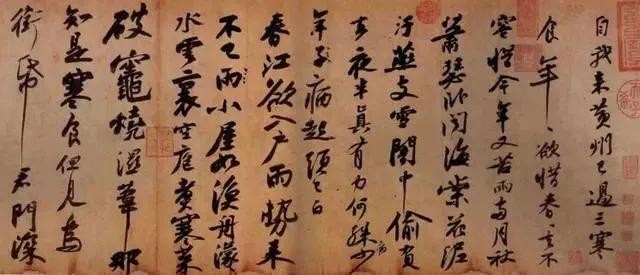 自我来黄州已過三寒
食年〻欲惜春〻去不
容惜今年又苦雨兩月秋
蕭瑟卧聞海棠花泥
汙燕支雪闇中偷負
去夜半真有力何殊病少
年子病起須已白
春江欲入户雨勢来
不已雨小屋如漁舟濛〻
水雲裏空庖煮寒菜
破竈燒濕葦那
知是寒食但見烏
銜帋君門深